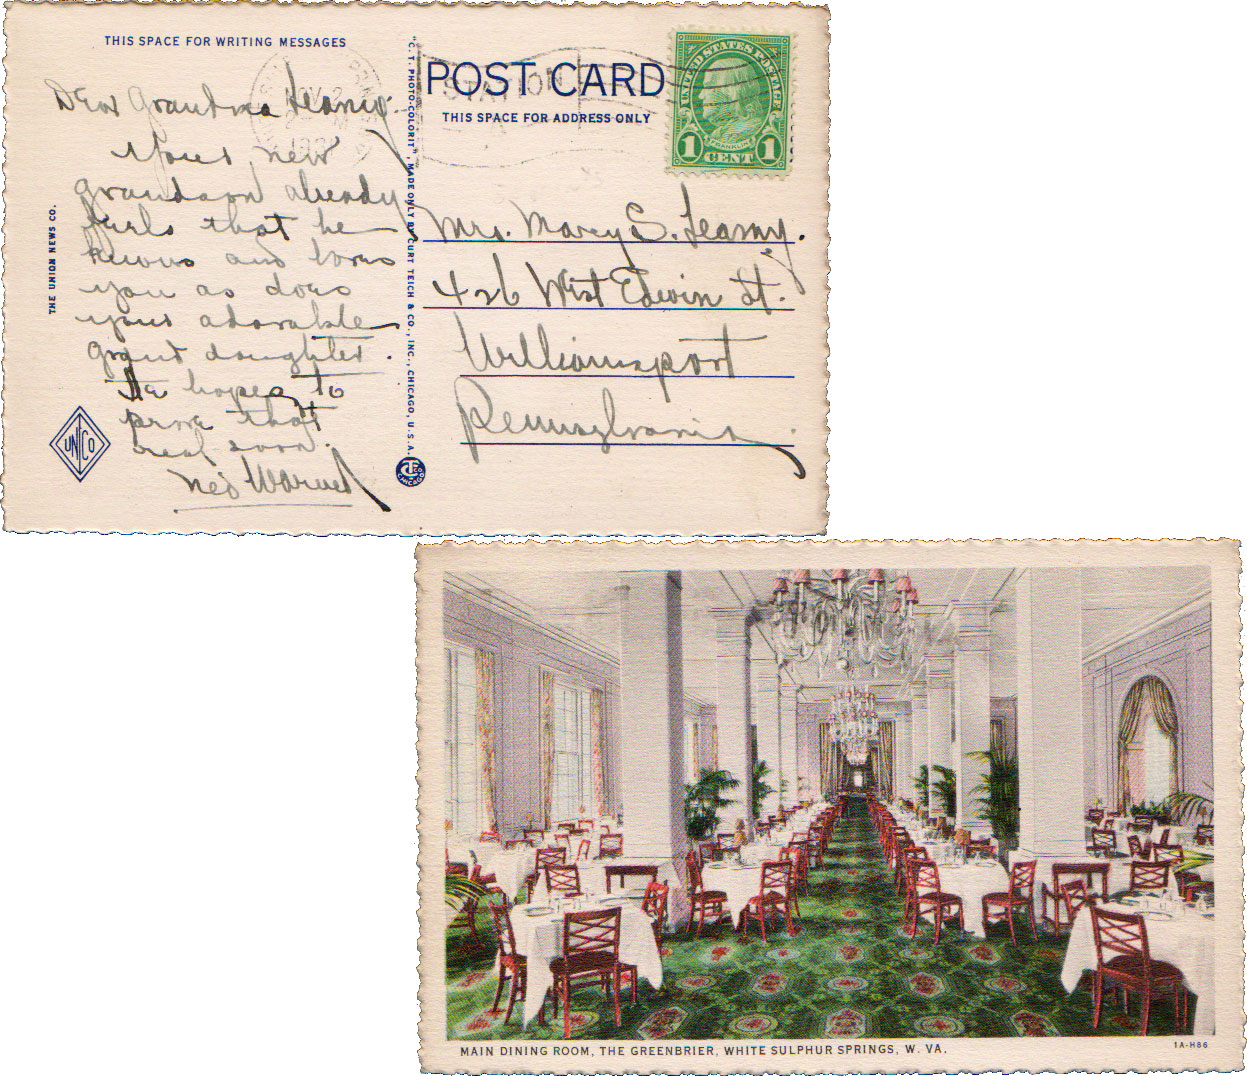 THIS SPACE FOR WRITING MESSAGES
Dear Grandma
Your new
grandson already
feels that he
knows and loves
you as does
your adorable
grand daughter.
He hopes to
prove that
real soon.
Ned
THE UNION NEWS CO.
UNCO
"C.T. PHOTO-COLORIT", MADE ONLY BY CURT TEICH & CO., INC., CHICAGO, U.S.A.
CHICAGO
POST CARD
THIS SPACE FOR ADDRESS ONLY
STATION
NOV 2
UNITED STATES POSTAGE
FRANKLIN
1 CENT 1
Mrs. Mary S.
426 West Edwin St.
Williamsport
Pennsylvania
MAIN DINING ROOM, THE GREENBRIER, WHITE SULPHUR SPRINGS, W. VA.
1A-H86